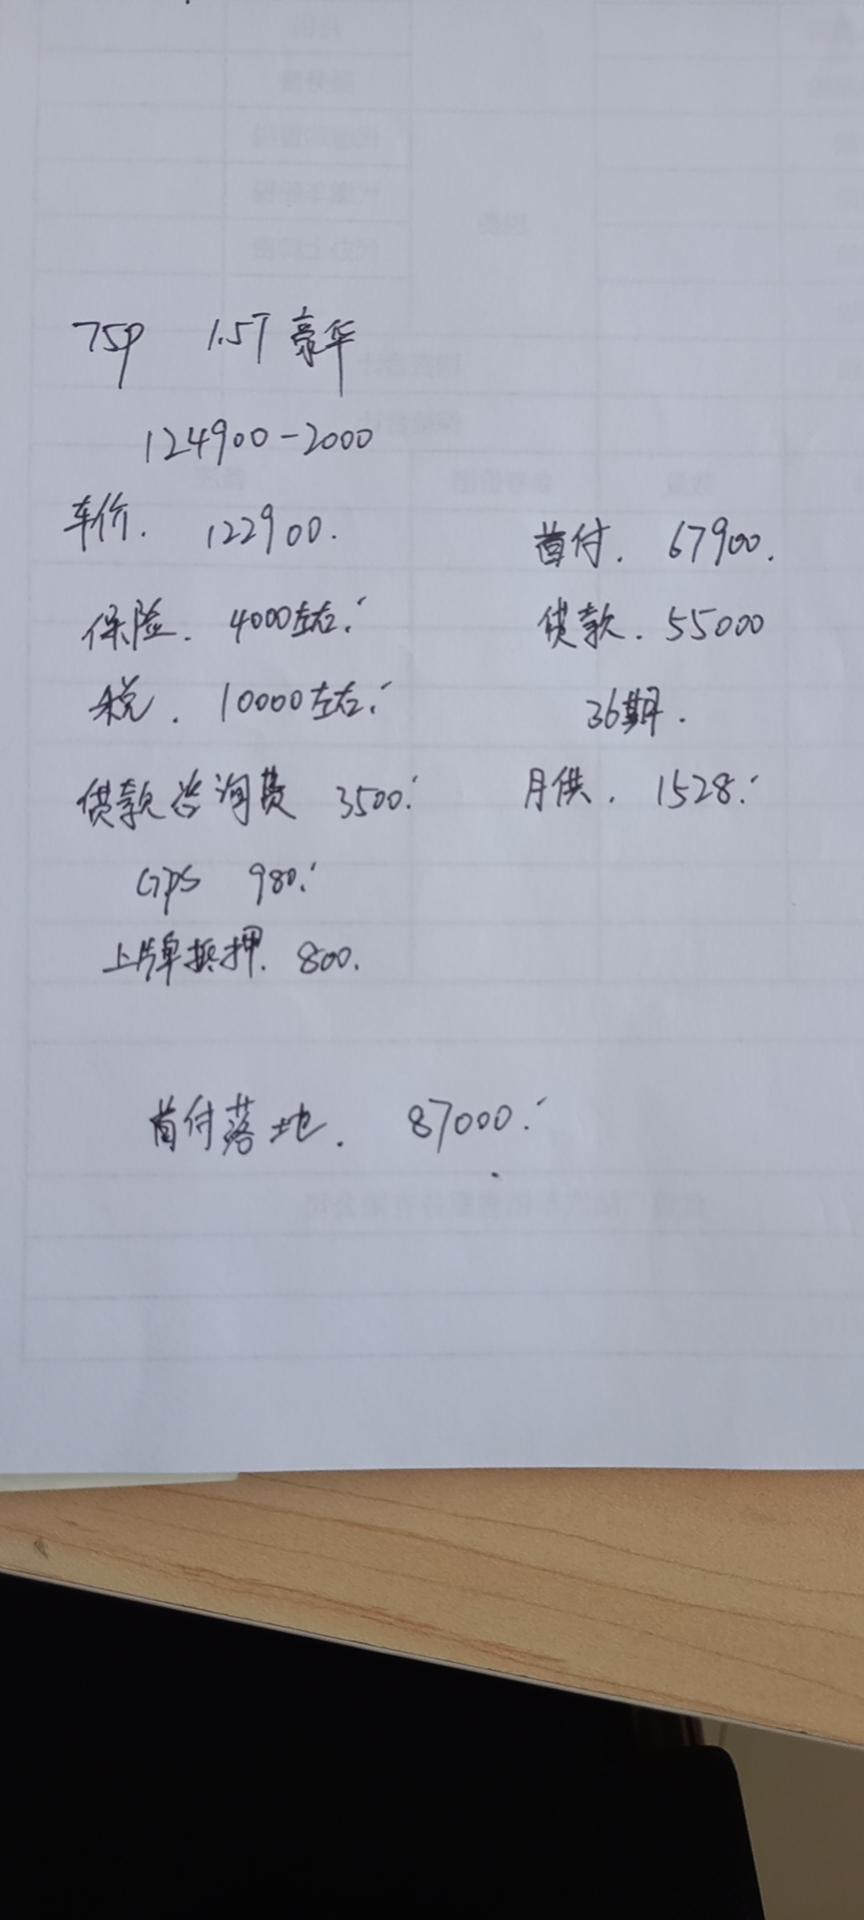 75P 1.5T豪华
124900-2000
车价. 122900.
保险. 4000左右.
税. 10000左右.
贷款咨询费 3500.
GPS 980.
上牌抵押. 800.
首付. 67900.
贷款. 55000
36期.
月供. 1528.
首付落地. 87000.